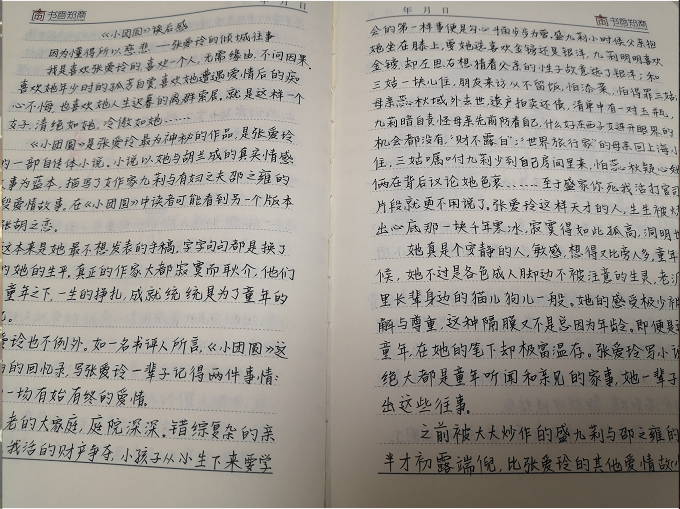 书香知商
年 月 日
《小团圆》读后感
因为懂得所以慈悲——张爱玲的倾城往事
我是喜欢张爱玲的喜欢一个人,无需缘由,不问因果.
喜欢她年少时的孤苦自爱喜欢她遭遇爱情后的痴
心不悔,也喜欢她人生迟暮的离群索居。就是这样一个
女子,清绝如她,冷傲如她……
《小团圆》是张爱玲最为神秘的作品,是张爱玲
的一部自传体小说,小说以她与胡兰成的真实情感
事为蓝本,描写了女作家九莉与有妇之夫邵之雍的
爱情故事,在《小团圆》中读者可能看到另一个版本
张胡之恋.
这本来是她最不想发表的手稿,字字句句都是换了
的她的生平,真正的作家大都寂寞而耿介,他们
童年之下,一生的挣扎,成就统统是为了童年的
爱玲也不例外。如一名书评人所言,《小团圆》这
的回忆录,写张爱玲一辈子记得两件事情:
一场有始有终的爱情.
老的大家庭,庭院深深。错综复杂的亲
我活的财产争夺,小孩子从小生下来要学
年 月 日
书香知商
会的第一样事便是勾心 步步为营,盛九莉小时候父亲把
她坐在膝上,要她选喜欢金镑还是银洋,九莉明明喜欢
金镑,却左思右想猜着父亲的性子故意选了银洋;和
三姑一块儿住,朋友来访从不留饭,怕洛桑,怕得罪三姑,
母亲燕秋域外去世,遗产拍卖还债,清单中有一对玉瓶,
九莉暗自责怪母亲先前防着自己,什么好东西子女进开眼界的
机会都没有,"财不露白";"世界旅行家"的母亲回上海小
住,三姑嘱咐九莉少到自己房间里来,怕惹心秋疑心她
俩在背后议论她色衰……至于盛家你死我活打官司
片段就更不用说了。张爱玲这样天才的人,生生被
出心底那一块千年寒冰,寂寞得如此孤高,洞明
她真是个安静的人,敏感,想得又比旁人多,童年
候,她不过是各色成人脚边不被注意的生灵,老
里长辈身边的猫儿狗儿一般。她的感受极少被
解与尊重,这种隔膜又不是总因为年龄。即便是
童年,在她的笔下却极富温存。张爱玲写小
绝大都是童年听闻和亲见的家事,她一辈子
出这些往事.
之前被大大炒作的盛九莉与邵之雍的
半才初露端倪,比张爱玲的其他爱情故